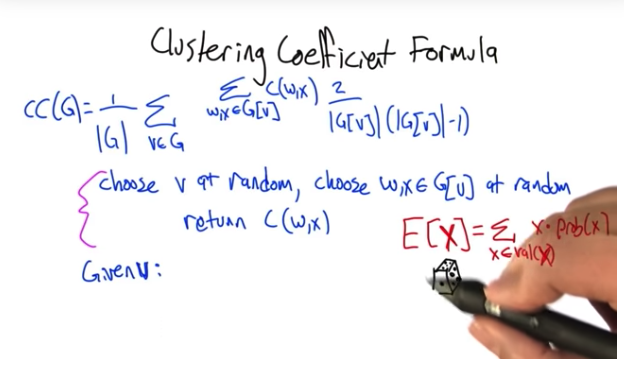 Clustering Coefficient Formula
CC(G)= 1/|G| Σ v∈G Σ w,x∈G[v] C(w,x) 2/|G[v]|(|G[v]|-1)
choose v at random, choose w,x∈G[v] at random
return C(w,x)
E[X]= Σ x∈val(X) x·prob(x)
Given v: